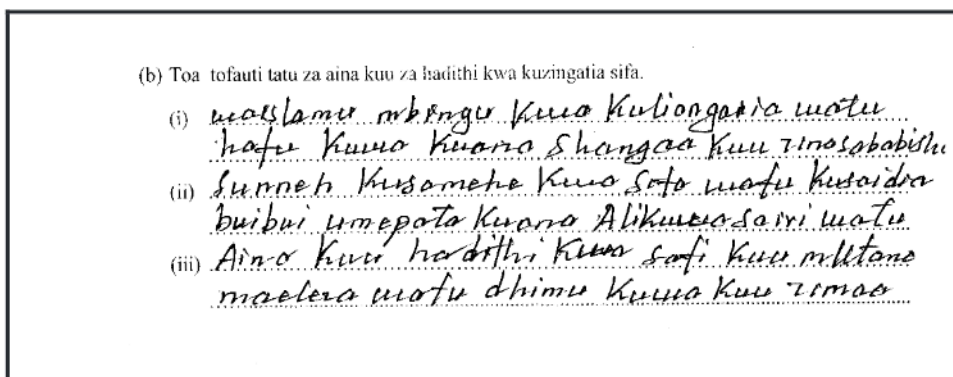 (b) Toa tofauti tatu za aina kuu za hadithi kwa kuzingatia sifa.
(i) waislamu mbingu Kuwa Kuliongaria watu
hafu Kuwa Kuana Shangaa Kuu zinasababishe
(ii) Sunneh Kusamehe Kuwa Soto watu Kusaidia
buibui umepata Kuana Alikuwa sairi watu
(iii) Aina Kuu hadithi Kuwa Safi Kuu mlitano
maelera watu dhimu Kuwa Kuu zimaa